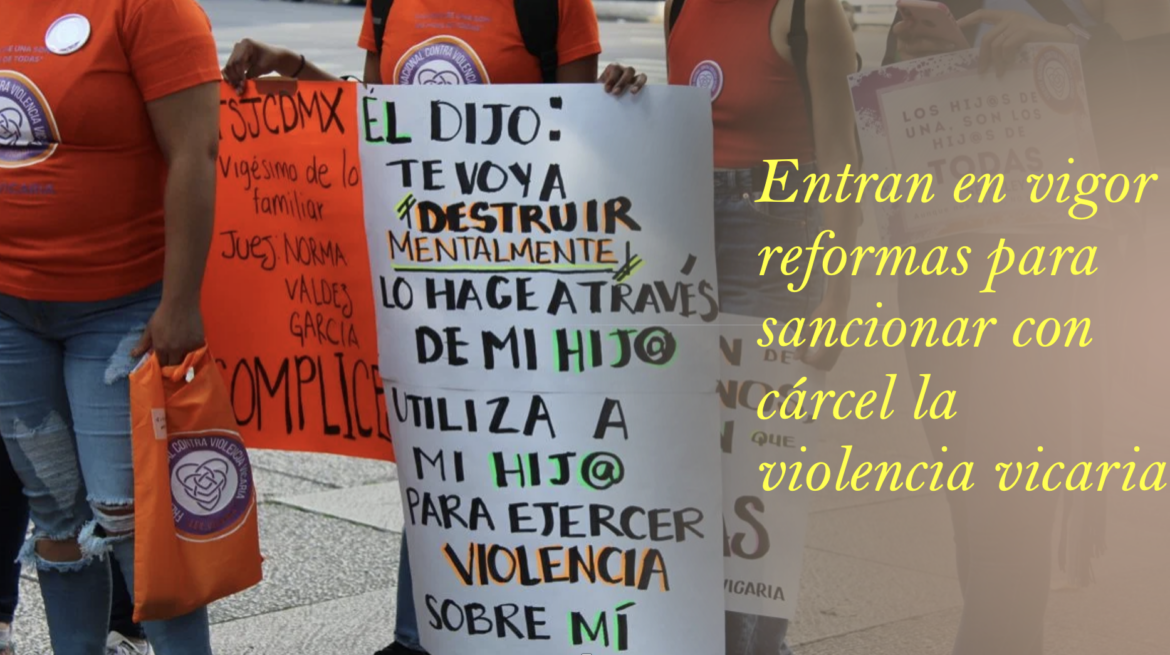 TSJCDMX
Vigésimo de lo
familiar
Juez: NORMA
VALDES
GARCIA
COMPLICE
ÉL DIJO:
TE VOY A
DESTRUIR
MENTALMENTE
LO HACE A TRAVÉS
DE MI HIJ@
UTILIZA A
MI HIJ@
PARA EJERCER
VIOLENCIA
SOBRE MÍ
LOS HIJ@S DE
UNA, SON LOS
HIJ@S DE
TODAS
DE
QUE
Entran en vigor
reformas para
sancionar con
cárcel la
violencia vicaria
CONTRA VIOLENCIA VICARIA